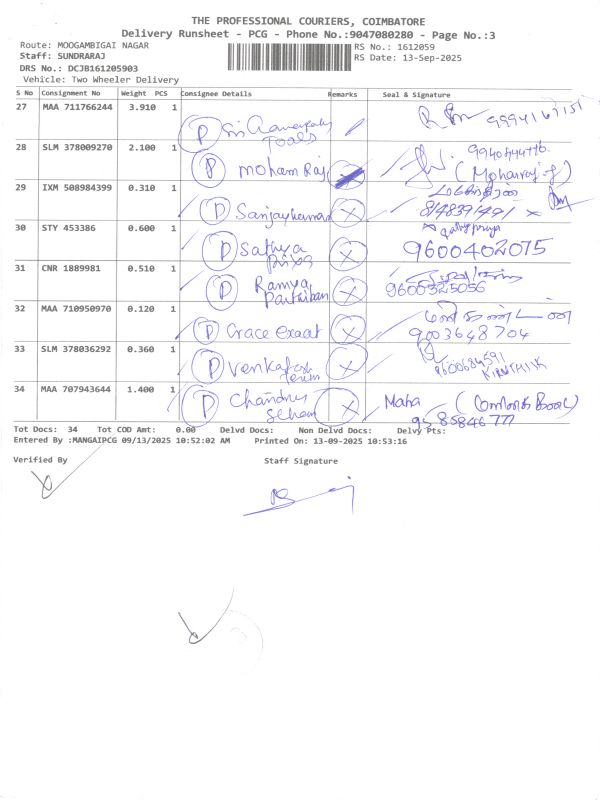 THE PROFESSIONAL COURIERS, COIMBATORE
Delivery Runsheet - PCG - Phone No.:9047080280 - Page No.:3
Route: MOOGAMBIGAI NAGAR
RS No.: 1612059
Staff: SUNDRARAJ
RS Date: 13-Sep-2025
DRS No.: DCJB161205903
Vehicle: Two Wheeler Delivery
S No Consignment No Weight PCS Consignee Details Remarks Seal & Signature
27 MAA 711766244 3.910 1
P Sri
Tools
28 SLM 378009270 2.100 1
P Moham Raj
(Mohanraj
29 IXM 508984399 0.310 1
P Sanjaykumar X
30 STY 453386 0.600 1
P Sathya
Priya X 9600402075
31 CNR 1889981 0.510 1
P Ramya X 9600325056
32 MAA 710950970 0.120 1
P Grace X 9003648704
33 SLM 378036292 0.360 1
P X 9600684591
34 MAA 707943644 1.400 1
P X Maha
Tot Docs: 34 Tot COD Amt: 0.00 Delvd Docs: Non Delvd Docs: Delvy Pts:
Entered By :MANGAIPCG 09/13/2025 10:52:02 AM Printed On: 13-09-2025 10:53:16
Verified By Staff Signature